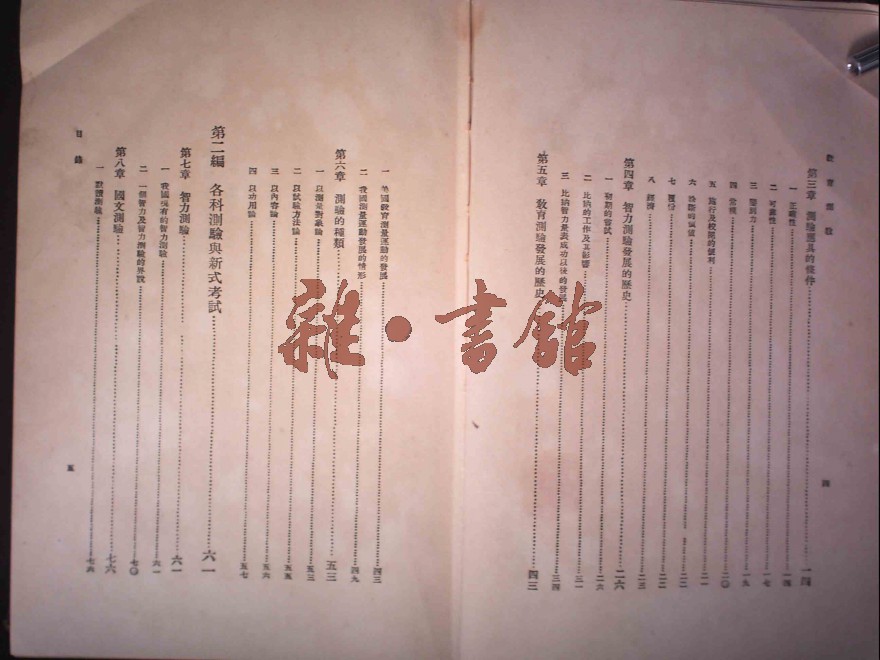 教育測驗
第三章 測驗應具的條件 一四
一 正確性 一四
二 可靠性 一七
三 鑒別力 一九
四 常模 二〇
五 施行及校閱的便利 二一
六 診斷的價值 二二
七 複份 二二
八 經濟 二三
第四章 智力測驗發展的歷史 二六
一 初期的嘗試 二六
二 比納的工作及其影響 三一
三 比納智力量表成功以後的發展 三四
第五章 教育測驗發展的歷史 四三
四
一 美國教育測量運動的發展 四三
二 我國測量運動發展的情形 四九
第六章 測驗的種類 五三
一 以測量對象論 五三
二 以試驗方法論 五五
三 以內容論 五六
四 以功用論 五七
第二編 各科測驗與新式考試 六一
第七章 智力測驗 六一
一 我國現有的智力測驗 六一
二 一個智力及智力測驗的界說 七〇
第八章 國文測驗 七六
一 默讀測驗 七六
目錄
五
雜·書館